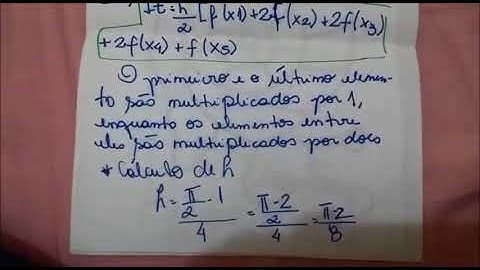 It = h/2 [f(x1)+2f(x2)+2f(x3)
+2f(x4)+f(x5)
O primeiro e o último elemen-
to são multiplicados por 1,
enquanto os elementos entre
eles são multiplicados por dois
* Calculo de h
h = π/2 - 1 / 4 = π-2/2 / 4 = π-2/8